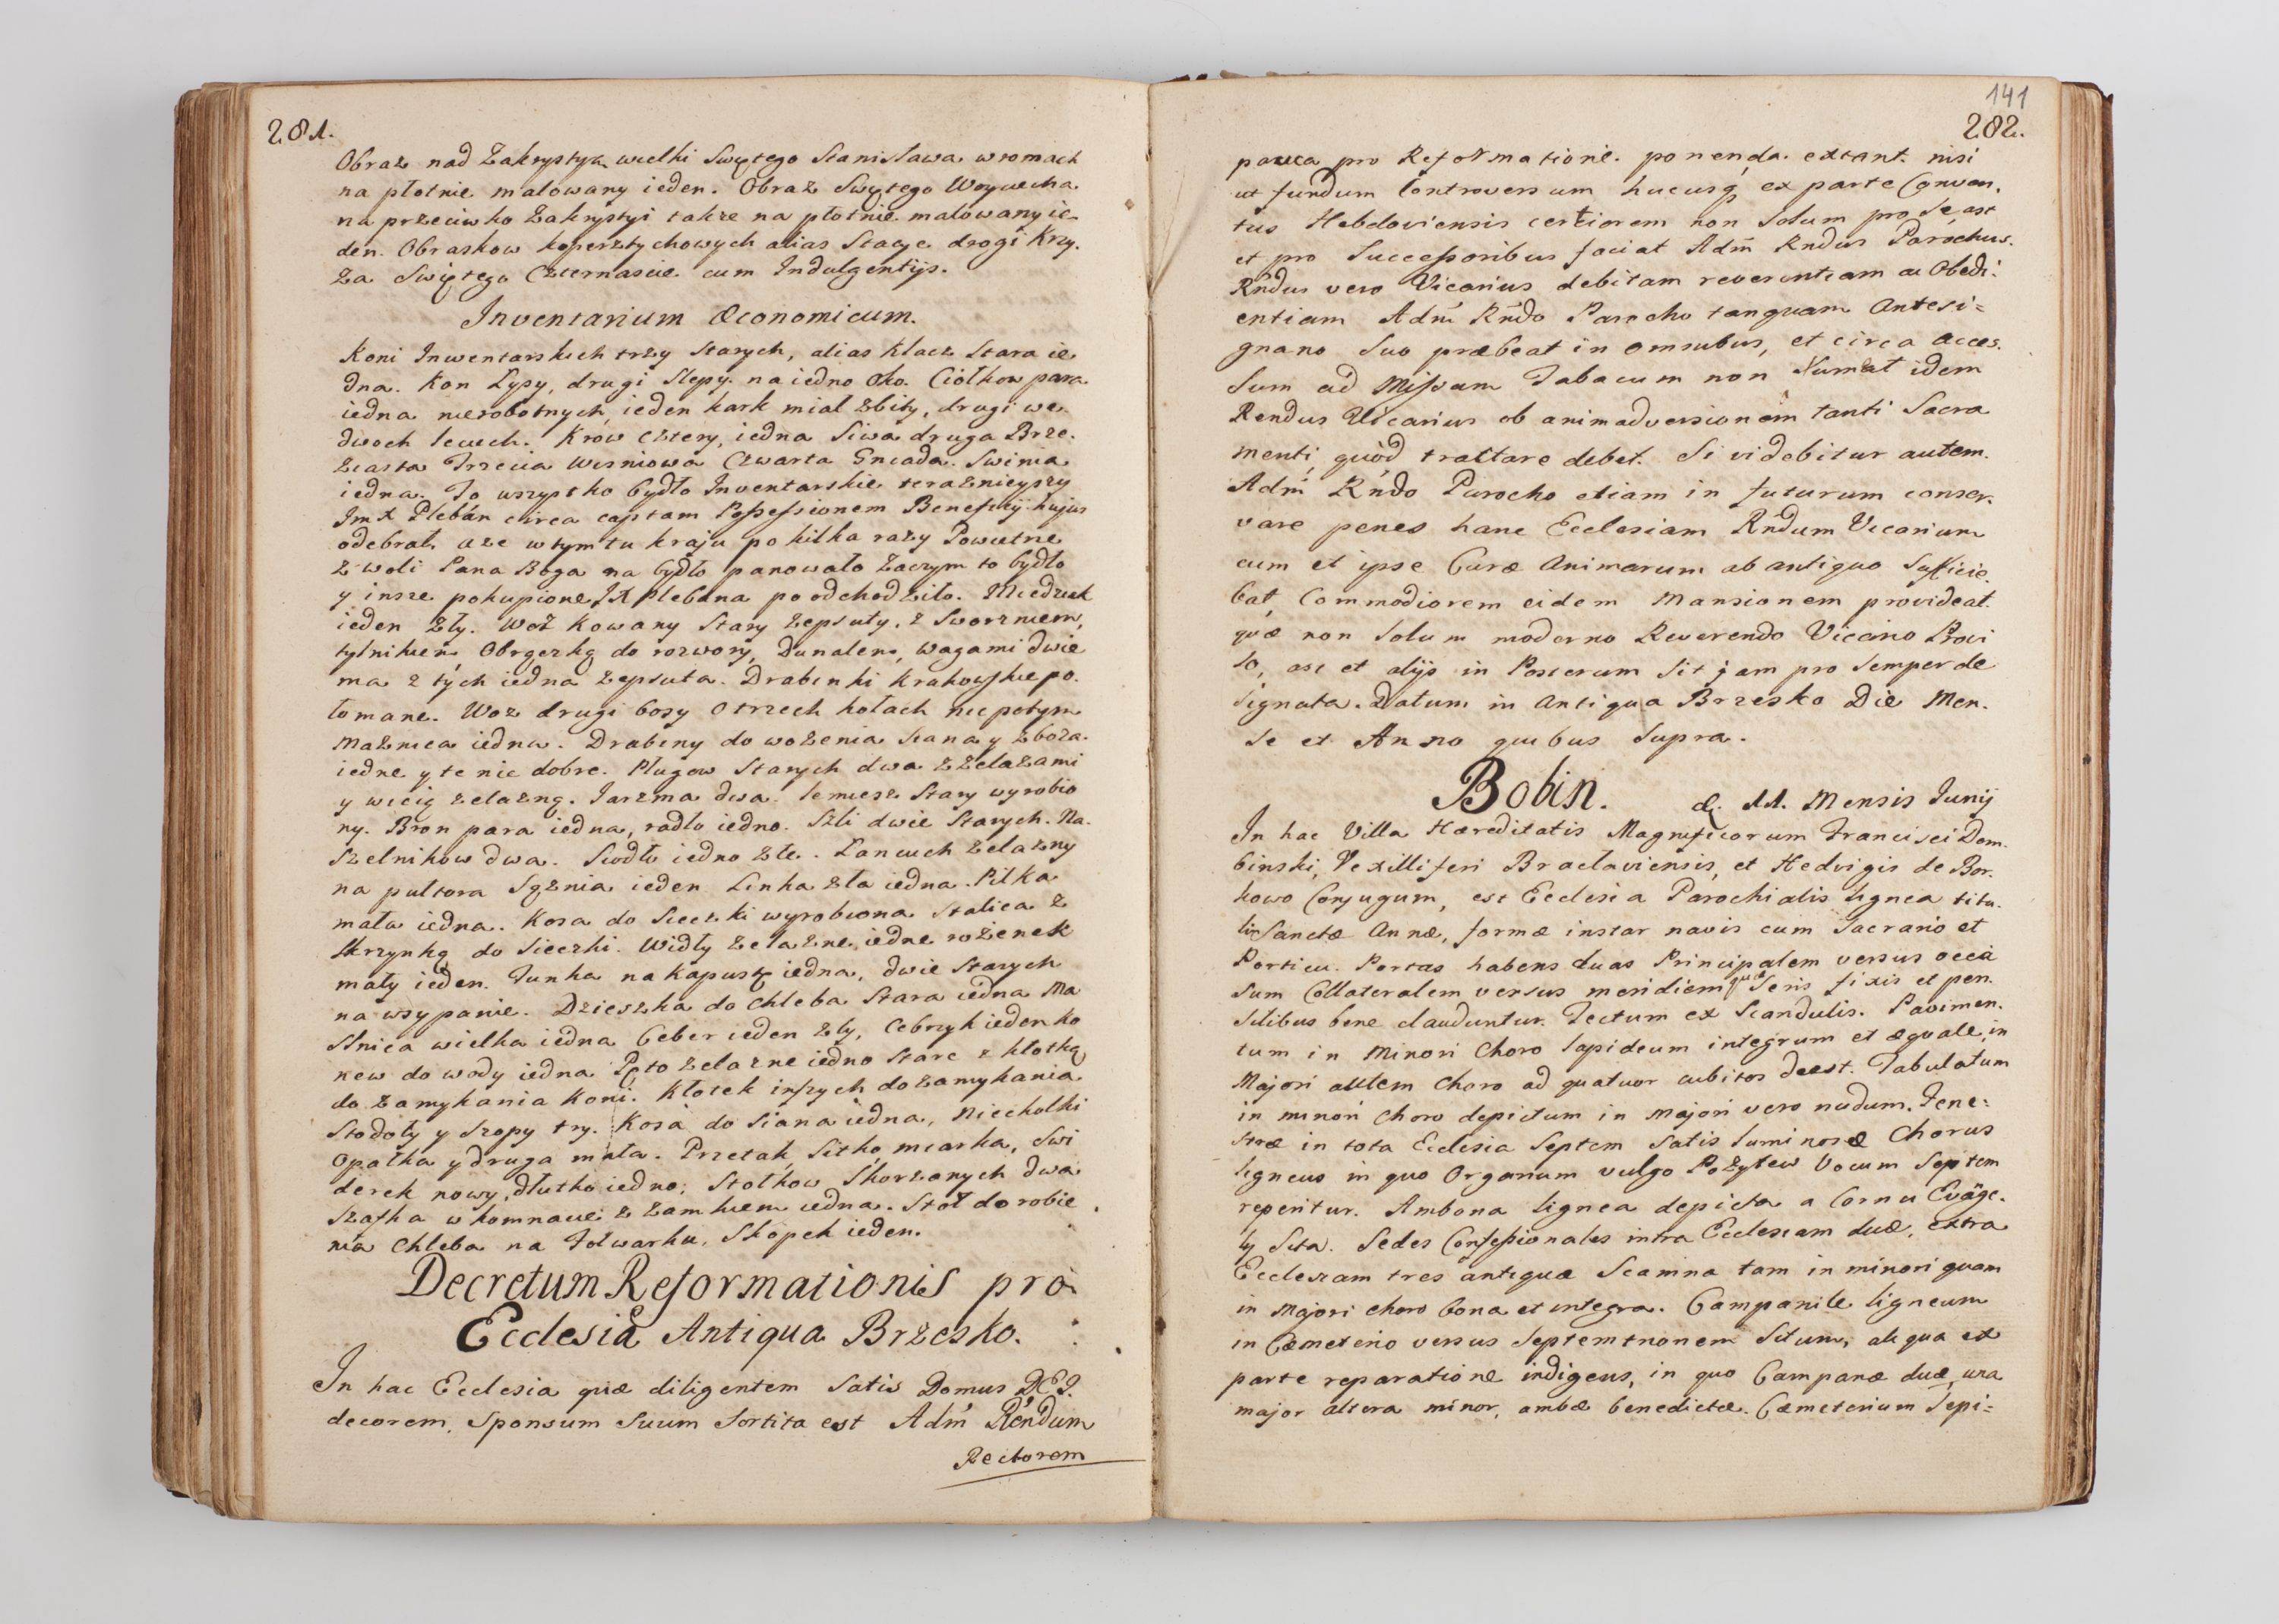 281.
Obraz nad Zakrystyą wielki Swiętego Stanisława wromach
na płotnie malowany ieden. Obraz Swiętego Woyciecha
na przeciwko Zakrystyi takze na płotnie malowany ie-
den. Obraskow koperztychowych alias Stacye drogi Krzy.
za Swiętego Czternascie cum Indulgentijs.
Inventarium Œconomicum.
Koni Inwentarskich trzy Starych, alias Klacz Stara ie
dna. Kon Łysy, drugi Slepy na iedno Oko. Ciołkow para
iedna nierobotnych, ieden kark miał zbity, drugi we
dwoch leciech. Krow cztery, iedna Siwa druga Brze.
ziasta Trzecia Wisniowa Czwarta Gniada. Swinia
iedna. To wszystko bydło Inventarskie teraznieyszy
Jmx Pleban circa captam Possessionem Beneficij hujus
odebrał, aze w tym tu kraju po kilka razy Powietrze
z woli Pana Boga na bydło panowało Zaczym to bydło
y insze pokupione JX Plebana poodchodziło. Miedziuch
ieden zły. Woz Kowany Stary zepsuty, z Sworzniem,
tylnikiem Obręczką do rozwory, Dunalem, Wagami dwie
ma z tych iedna zepsuta. Drabinki Krakowskie po.
łomane. Woz drugi bosy o trzech kołach nic potym
Maznica iedna. Drabiny do wozenia siana y zboza
iedne y te nie dobre. Pługow Starych dwa z zelazami
y wicią zelazną. Jarzma dwa. lemiesz Stary wyrobio
ny. Bron para iedna, radło iedno. Szli dwie Starych. Na.
szelnikow dwa. Siodło iedno złe. Łancuch zelazny
na pułtora Sążnia ieden Linka zła iedna. Piłka
mała iedna. Kosa do Sieczki wyrobiona Stolica z
Skrzynką do Sieczki. Widły zelazne iedne rozenek
mały ieden. Tunka na kapustę iedna, dwie Starych
na wsypanie. Dzieszka do chleba Stara iedna Ma
slnica wielka iedna Ceber ieden zły, Cebrzyk ieden ko
new do wody iedna Pęto zelazne iedno Stare z kłotką
do zamykania Koni. Kłotek inszych do zamykania
Stodoły y Szopy try. Kosa do Siana iedna, Niecholki
Opałka y druga mała. Przetak Sitko, miarka, Swi
derek nowy, dłutko iedno; Stołkow Skorzanych dwa
Szafka w komnacie z zamkiem iedna. Stoł do robie
nia Chleba na Folwarku, Skopek ieden.
Decretum Reformationis pro
Ecclesia Antiqua Brzesko.
In hac Ecclesia quæ diligentem Satis Domus DEI
decorem, Sponsum Suum Sortita est Adm̄ Rendum
Rectorem
141
282.
pauca pro Reformatione ponenda extant. nisi
ut fundum Controversum hucusq; ex parte Conven.
tus Hebdoviensis certiorem non Solum pro Se, ast
et pro Successoribus faciat Adm̄ Rndus Parochus.
Rndus vero Vicarius debitam reverentiam ac Obedi:
entiam Adm̄ Rndo Parocho tanquam Antesi=
gnano Suo præbeat in omnibus, et circa acces.
Sum ad Missam Tabacum non Sumat idem
Rendus Vicarius ob animadversionem tanti Sacra
menti, quod trattare debet. Si videbitur autem.
Adm̄ Rndo Parocho etiam in futurum conser.
vare penes hanc Ecclesiam Rndum Vicarium
cum et ipse Curæ Animarum ab antiquo Sufficie.
bat, Commodiorem eidem Mansionem provideat.
quæ non Solum moderno Reverendo Vicario Provi
so, ast et alijs in Posterum Sit jam pro Semper de
signata. Datum in Antiqua Brzesko Die Men.
se et Anno quibus Supra.
Bobin. d. 11. Mensis Junij
In hac Villa Hæreditatis Magnificorum Francisci Dem.
binski, Vexilliferi Bracłaviensis, et Hedvigis de Bor.
kowo Conjugum, est Ecclesia Parochialis lignea titu.
li Sanctæ Annæ, formæ instar navis cum Sacrario et
Porticu. Portas habens duas Principalem versus occa
sum Collateralem versus meridiem quæ Seris fixis et pen.
silibus bene clauduntur. Tectum ex Scandulis. Pavimen.
tum in Minori Choro lapideum integrum et æquale, in
Majori autem Choro ad quatuor cubitos deest. Tabulatum
in minori Choro depictum in Majori vero nudum. Fene:
stræ in tota Ecclesia Septem Satis luminosæ Chorus
ligneus in quo Organum vulgo Pozytew Vocum Septem
reperitur. Ambona lignea depicta a Cornu Evāge.
lij Sita. Sedes Confessionales intra Ecclesiam duæ, extra
Ecclesiam tres antiquæ Scamna tam in minori quam
in Majori choro bona et integra. Campanile ligneum
in Cæmeterio versus Septemtrionem Situm, aliqua ex
parte reparatione indigens, in quo Campanæ duæ, una
major altera minor, ambæ benedictæ. Cæmeterium Sepi=